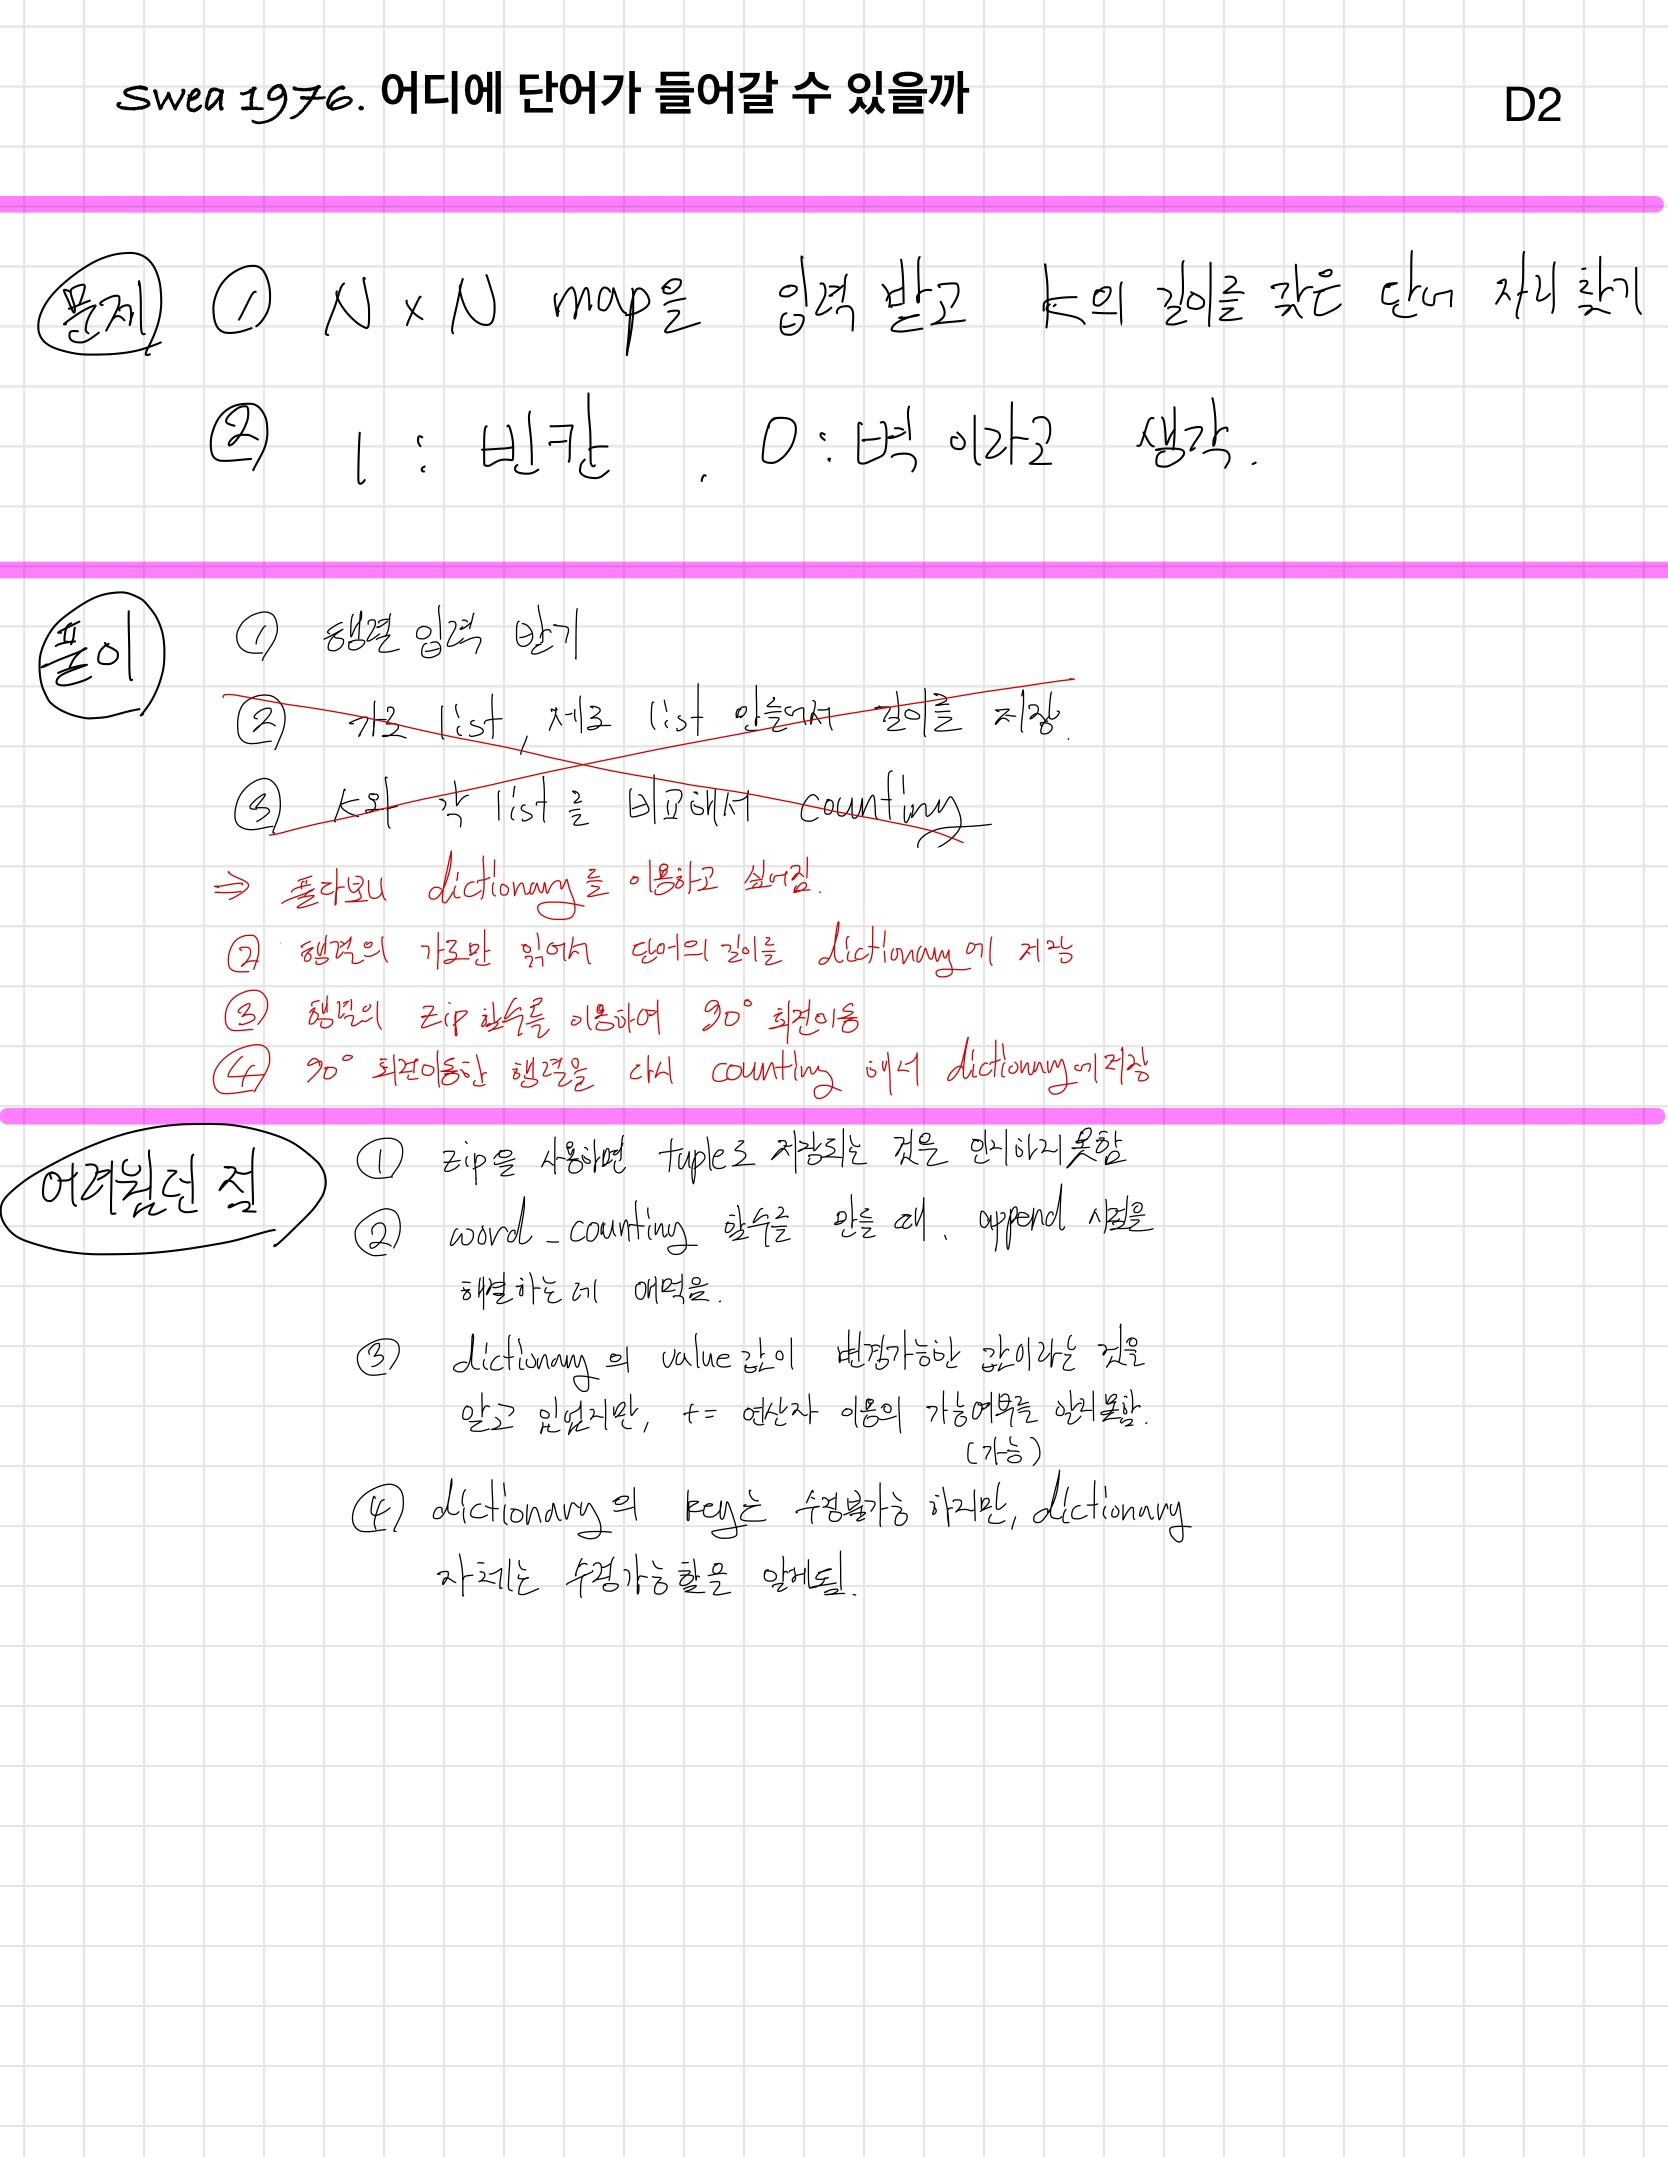 Swea 1976. 어디에 단어가 들어갈 수 있을까 D2
문제 ① N x N map을 입력 받고 K의 길이를 갖은 단어 자리 찾기
② 1 : 빈칸 . 0 : 벽 이라고 생각.
풀이 ① 행렬 입력 받기
② 가로 list, 세로 list 만들어서 길이를 저장.
③ K와 각 list를 비교해서 counting
⇒ 풀다보니 dictionary를 이용하고 싶어짐.
② 행렬의 가로만 읽어서 단어의 길이를 dictionary에 저장
③ 행렬의 zip 함수를 이용하여 90° 회전이동
④ 90° 회전이동한 행렬을 다시 counting 해서 dictionary에 저장
어려웠던 점 ① zip을 사용하면 tuple로 저장되는 것을 인지하지 못함
② word_counting 함수를 만들 때, append 시점을
해결하는데 애먹음.
③ dictionary의 value값이 변경가능한 값이라는 것을
알고 있었지만, += 연산자 이용의 가능여부를 알지못함.
(가능)
④ dictionary의 key는 수정불가능 하지만, dictionary
자체는 수정가능함을 알게됨.